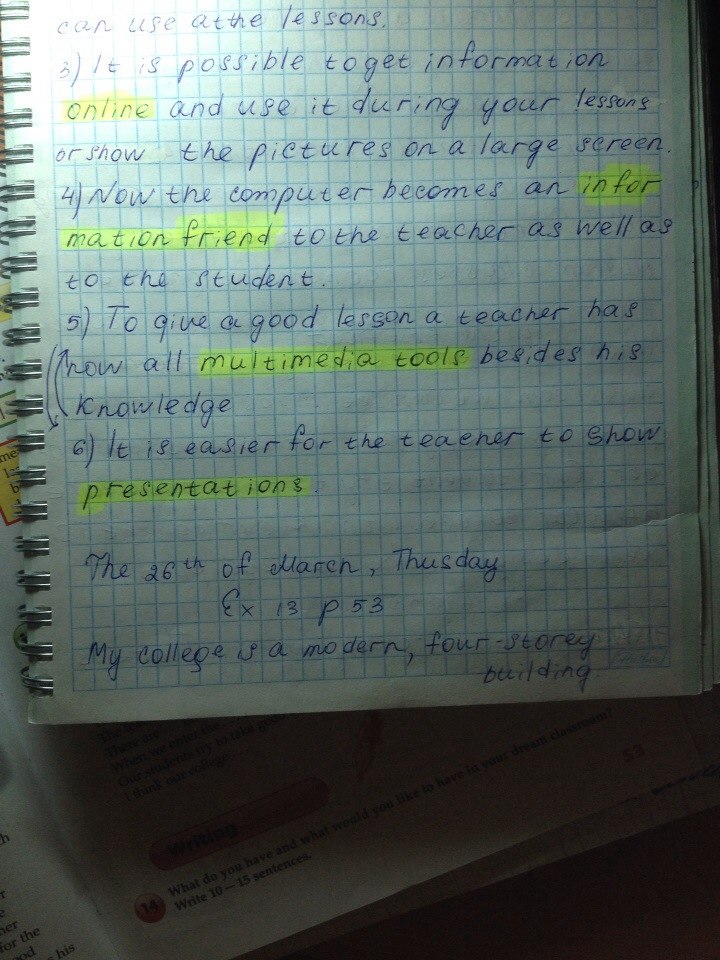 can use athe lessons.
3) It is possible to get information
online and use it during your lessons
or show the pictures on a large screen.
4) Now the computer becomes an infor
mation friend to the teacher as well as
to the student.
5) To give a good lesson a teacher has
now all multimedia tools besides his
knowledge
6) It is easier for the teacher to show
presentations.
The 26th of March, Thusday
Ex 13 p 53
My college is a modern, four-storey
building
There are
When we enter the
Our students try to take
I think our college
53
Writing
14 What do you have and what would you like to have in your dream classroom?
Write 10 – 15 sentences.
for the
his